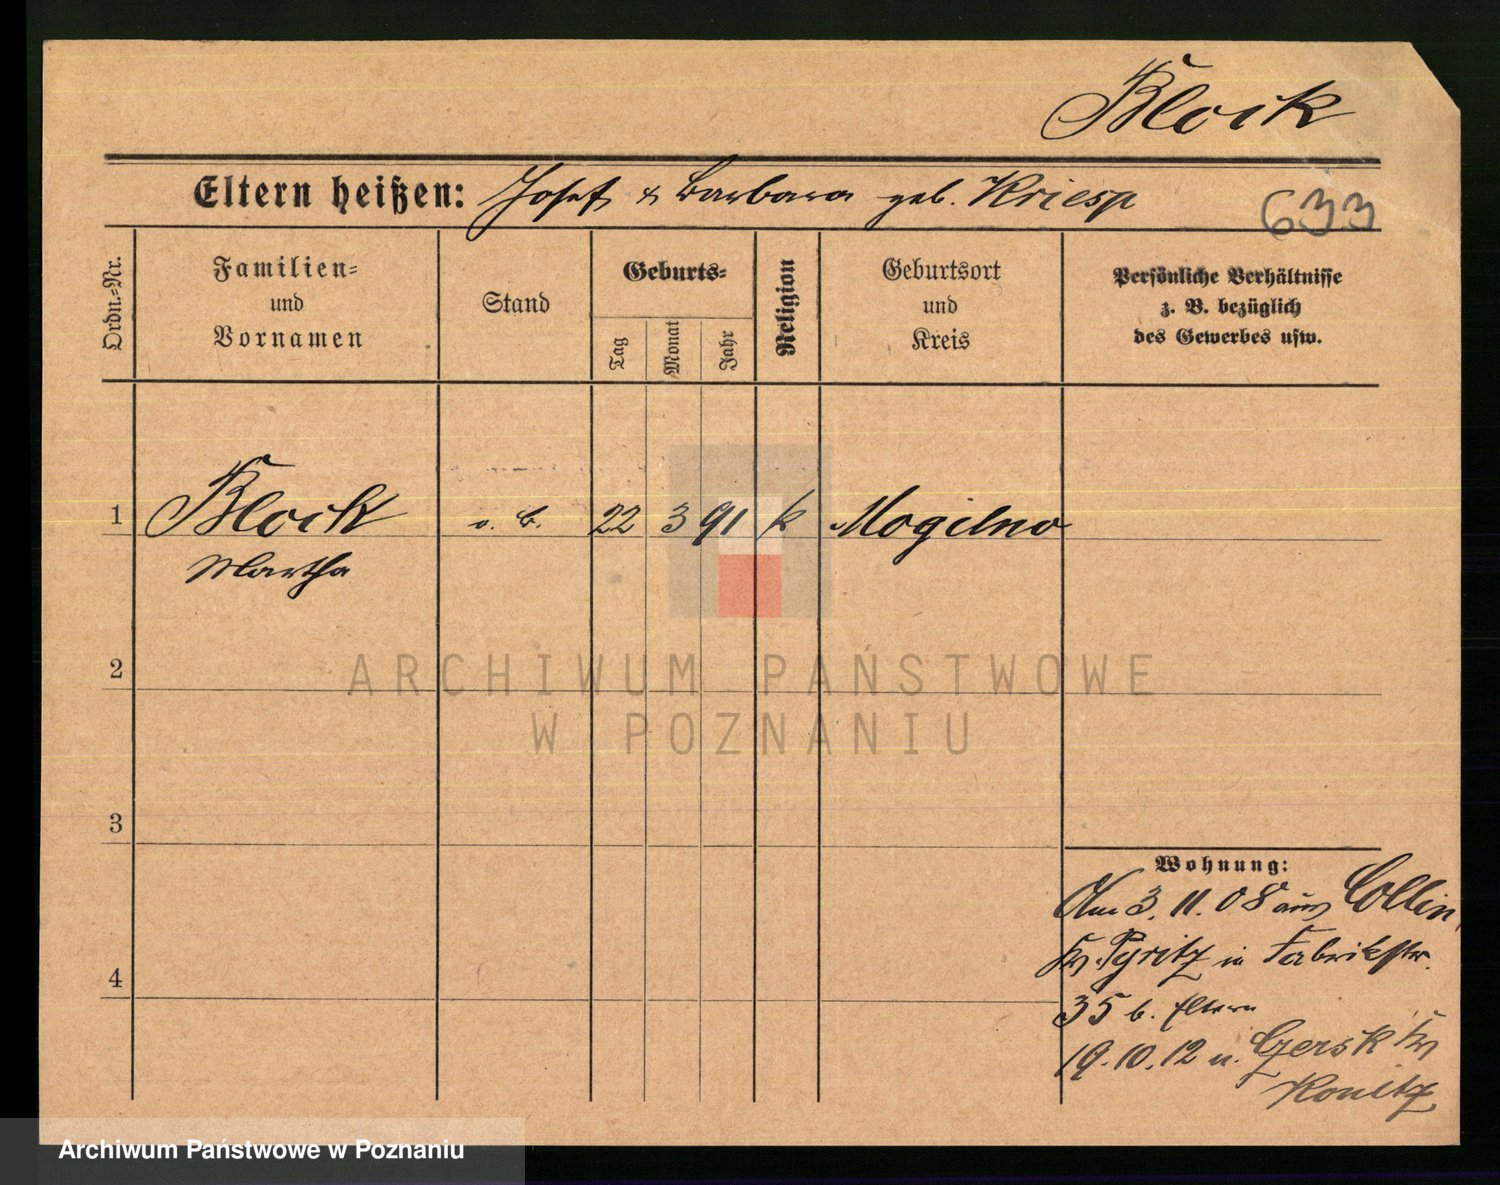 Block
Eltern heißen: Josef & Barbara geb. Kriesp
633
Ordn.-Nr.
Familien- und Vornamen
Stand
Geburts-
Tag
Monat
Jahr
Religion
Geburtsort und Kreis
Persönliche Verhältnisse
z. B. bezüglich
des Gewerbes usw.
1 Block o. B. 22 3 91 k Mogilno
Martha
2
3
4
Wohnung:
Am 3. 11. 08 aus Collin,
Kr. Pyritz in Fabrikstr.
35 b. Eltern
19. 10. 12 n. Czersk Kr
Konitz
ARCHIWUM PAŃSTWOWE
W POZNANIU
Archiwum Państwowe w Poznaniu